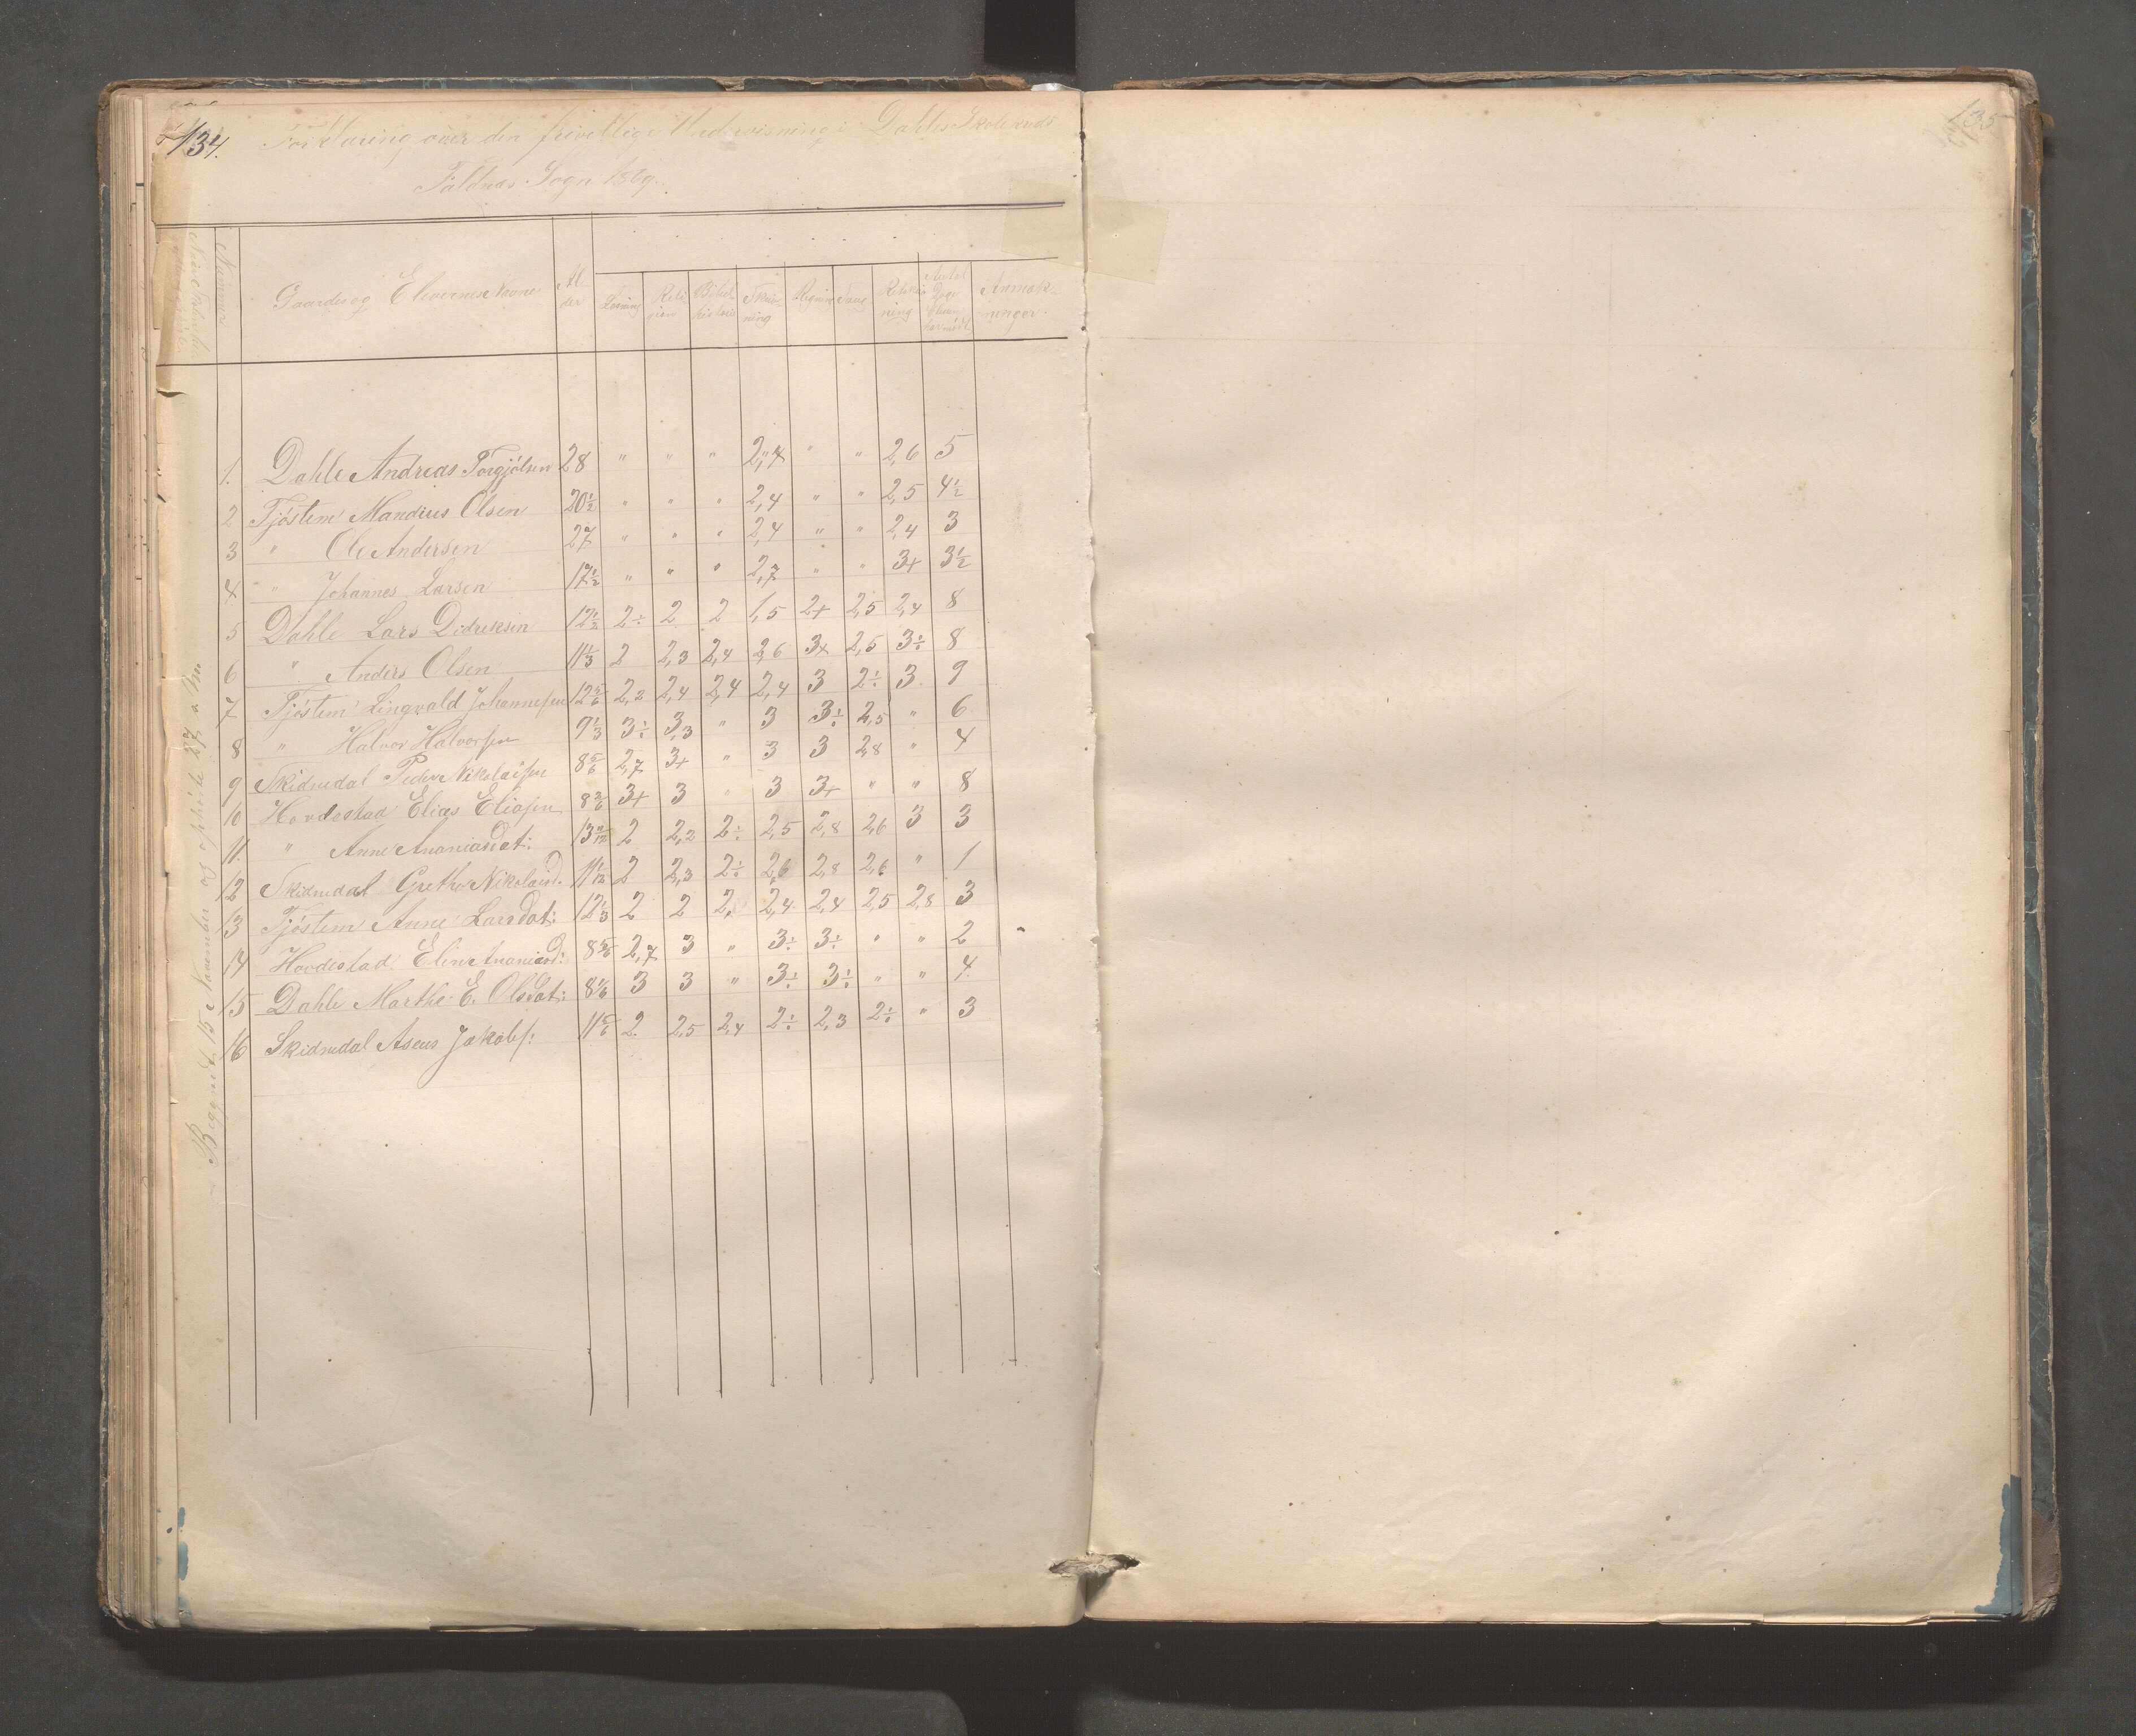 134.
Forklaring over den frivillige Undervisning i Dahle Skolekreds
Faldnæs Sogn 1869.
Nummer
Gaardes og Elevernes Navne
Al-
der
Læsning
Reli-
gion
Bibel-
historie
Skriv-
ning
Regning
Sang
Retskriv-
ning
Antal
Dage
Eleven
har mødt
Anmærk-
ninger.
1. Dahle Andreas Torgjølsen 28 " " " 2,7 " " 2,6 5
2 Tjøstem Mandius Olsen 20½ " " " 2,4 " " 2,5 4½
3 " Ole Andersen 27 " " " 2,4 " " 2,4 3
4 " Johannes Larsen 17½ " " " 2,7 " " 3+ 3½
5 Dahle Lars Didreksen 12½ 2÷ 2 2 1,5 2+ 2,5 2,4 8
6 " Anders Olsen 11⅓ 2 2,3 2,4 2,6 3+ 2,5 3÷ 8
7 Tjøstem Lingvald Johannesen 12⅚ 2,2 2,4 2,4 2,4 3 2÷ 3 9
8 " Halvor Halvorsen 9⅓ 3÷ 3,3 " 3 3÷ 2,5 " 6
9 Skidnedal Peder Nikolaisen 8⅚ 2,7 3+ " 3 3 2,8 " 4
10 Hovdestad Elias Eliasen 8 3+ 3 " 3 3+ " " 8
11. " Anne Ananiasdat: 13 2 2,2 2÷ 2,5 2,8 2,6 3 3
12 Skidnedal Grethe Nikolaid. 11 2 2,3 2÷ 2,6 2,8 2,6 " 1
13 Tjøstem Anne Larsdat: 12⅓ 2 2 2, 2,4 2,4 2,5 2,8 3
14 Hovdestad Eline Ananiasd: 8⅚ 2,7 3 " 3÷ 3÷ " " 2
15 Dahle Marthe E. Olsdat: 8⅙ 3 3 " 3÷ 3÷ " " 4
16 Skidnedal Aseus Jakobs: 11⅚ 2 2,5 2,4 2÷ 2,3 2÷ " 3
Begyndt 15 November og ophørte 27 a. m.
135